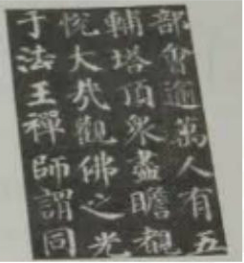 部會逾萬人有五
輔塔頂衆盡瞻覩
悅大觀佛之光
于法王禪師謂同